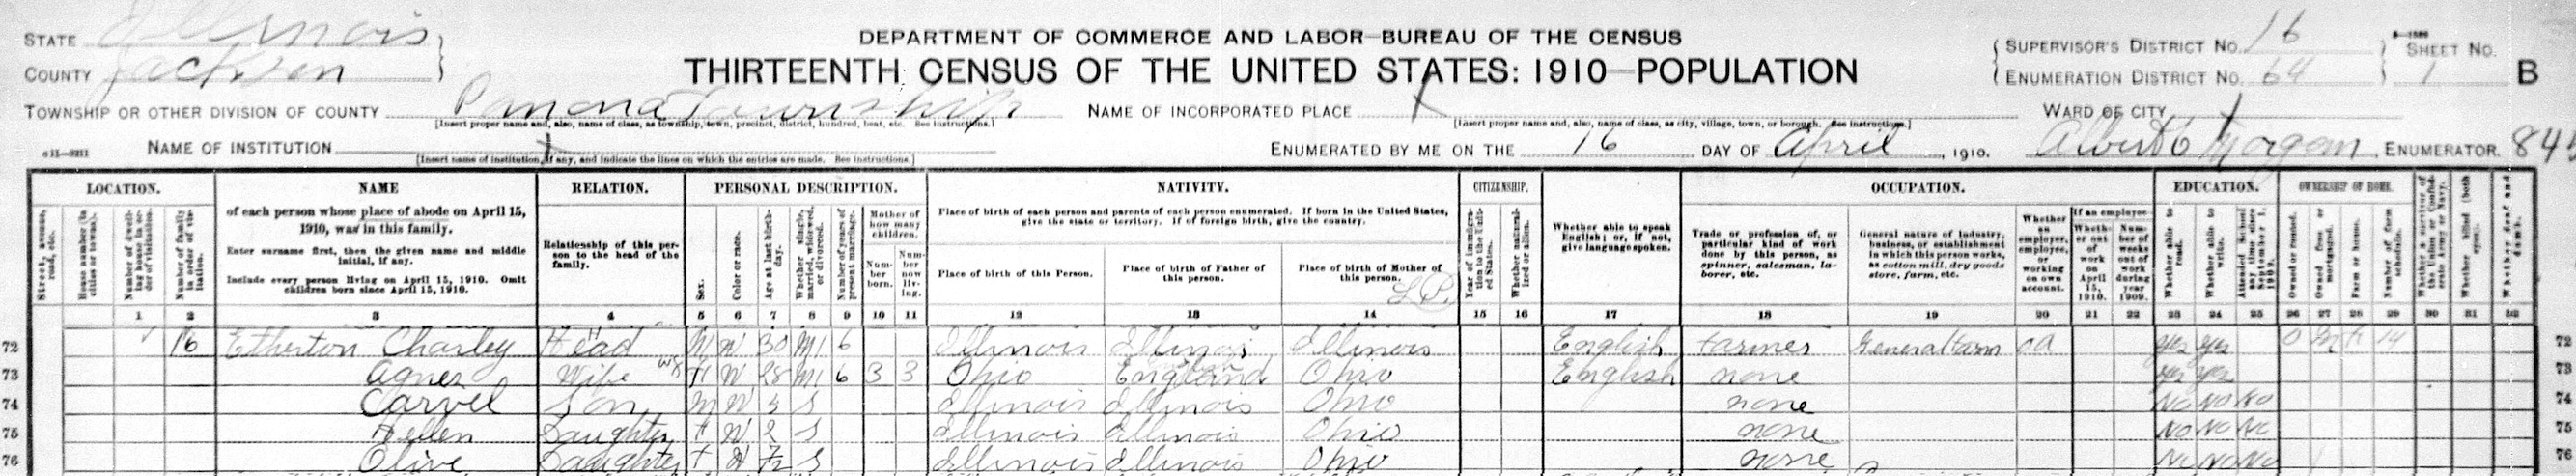 STATE Illinois
COUNTY Jackson
DEPARTMENT OF COMMERCE AND LABOR—BUREAU OF THE CENSUS
THIRTEENTH CENSUS OF THE UNITED STATES: 1910—POPULATION
SUPERVISOR'S DISTRICT No. 16
ENUMERATION DISTRICT No. 64
SHEET No. 1 B
TOWNSHIP OR OTHER DIVISION OF COUNTY Pomona Township
[Insert proper name and, also, name of class, as township, town, precinct, district, hundred, beat, etc. See instructions.]
NAME OF INCORPORATED PLACE X
[Insert proper name and, also, name of class, as city, village, town, or borough. See instructions.]
WARD OF CITY X
NAME OF INSTITUTION X
[Insert name of institution, if any, and indicate the lines on which the entries are made. See instructions.]
ENUMERATED BY ME ON THE 16 DAY OF April, 1910. Albert Morgan, ENUMERATOR. 845
LOCATION.
Street, avenue, road, etc.
House number (in cities or towns).
Number of dwelling house in order of visitation.
Number of family in order of visitation.
NAME
of each person whose place of abode on April 15, 1910, was in this family.
Enter surname first, then the given name and middle initial, if any.
Include every person living on April 15, 1910. Omit children born since April 15, 1910.
RELATION.
Relationship of this person to the head of the family.
PERSONAL DESCRIPTION.
Sex.
Color or race.
Age at last birthday.
Whether single, married, widowed, or divorced.
Number of years of present marriage.
Mother of how many children.
Number born.
Number now living.
NATIVITY.
Place of birth of each person and parents of each person enumerated. If born in the United States, give the state or territory. If of foreign birth, give the country.
Place of birth of this Person.
Place of birth of Father of this person.
Place of birth of Mother of this person.
CITIZENSHIP.
Year of immigration to the United States.
Whether naturalized or alien.
Whether able to speak English; or, if not, give language spoken.
OCCUPATION.
Trade or profession of, or particular kind of work done by this person, as spinner, salesman, laborer, etc.
General nature of industry, business, or establishment in which this person works, as cotton mill, dry goods store, farm, etc.
Whether an employer, employee, or working on own account.
If an employee—
Whether out of work on April 15, 1910.
Number of weeks out of work during year 1909.
EDUCATION.
Whether able to read.
Whether able to write.
Attended school any time since September 1, 1909.
OWNERSHIP OF HOME.
Owned or rented.
Owned free or mortgaged.
Farm or house.
Number of farm schedule.
Whether a survivor of the Union or Confederate Army or Navy.
Whether blind (both eyes).
Whether deaf and dumb.
1 2 3 4 5 6 7 8 9 10 11 12 13 14 15 16 17 18 19 20 21 22 23 24 25 26 27 28 29 30 31 32
72 16 Etherton Charley Head M W 30 M1 6 Illinois Illinois Illinois English Farmer General Farm OA yes yes O M F 14 72
73 Agnes Wife F W 28 M1 6 3 3 Ohio England Ohio English none yes yes 73
74 Carvel Son M W S Illinois Illinois Ohio none No No No 74
75 Hellen Daughter F W 2 S Illinois Illinois Ohio none No No No 75
76 Olive Daughter F W S Illinois Illinois Ohio none No No No 76